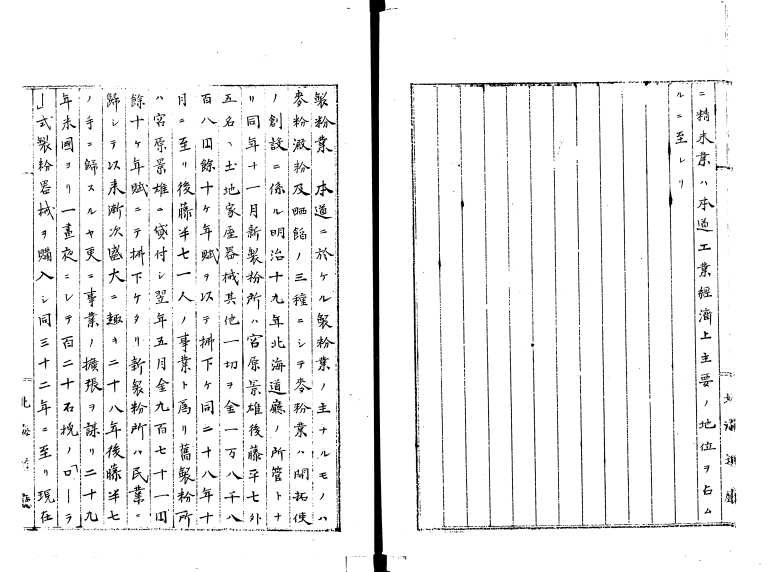 ニ精米業ハ本道工業経済上主要ノ地位ヲ占ム
ルニ至レリ
製粉業 本道ニ於ケル製粉業ノ主ナルモノハ
麥粉澱粉及晒餡ノ三種ニシテ麥粉業ハ開拓使
ノ創設ニ係ル明治十九年北海道廳ノ所管トナ
リ同年十一月新製粉所ハ宮原景雄後藤半七外
五名、土地家座器械其他一切ヲ金一万八千八
百八円餘十ケ年賦ヲ以テ拂下ケ同二十八年十
月ニ至リ後藤半七一人ノ事業ト爲リ舊製粉所
ハ宮原景雄ニ貸付シ翌年五月金九百七十一円
餘十ケ年賦ニテ拂下ケタリ新製粉所ハ民業ニ
歸シテ以来漸次盛大ニ趣キ二十八年後藤半七
ノ手ニ歸スルヤ更ニ事業ノ擴張ヲ謀リ二十九
年米國ヨリ一晝夜ニシテ百二十石挽ノ「ローラ
」式製粉器械ヲ購入シ同三十二年ニ至リ現在
北海道廳